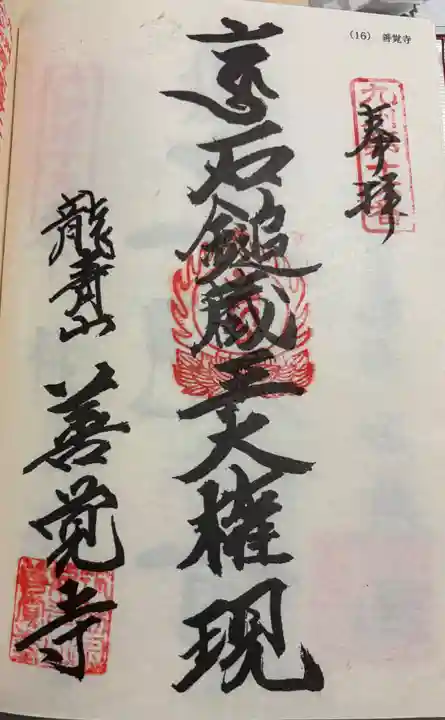 (16) 善覚寺
奉拝
石鎚蔵王大権現
龍寿山 善覚寺